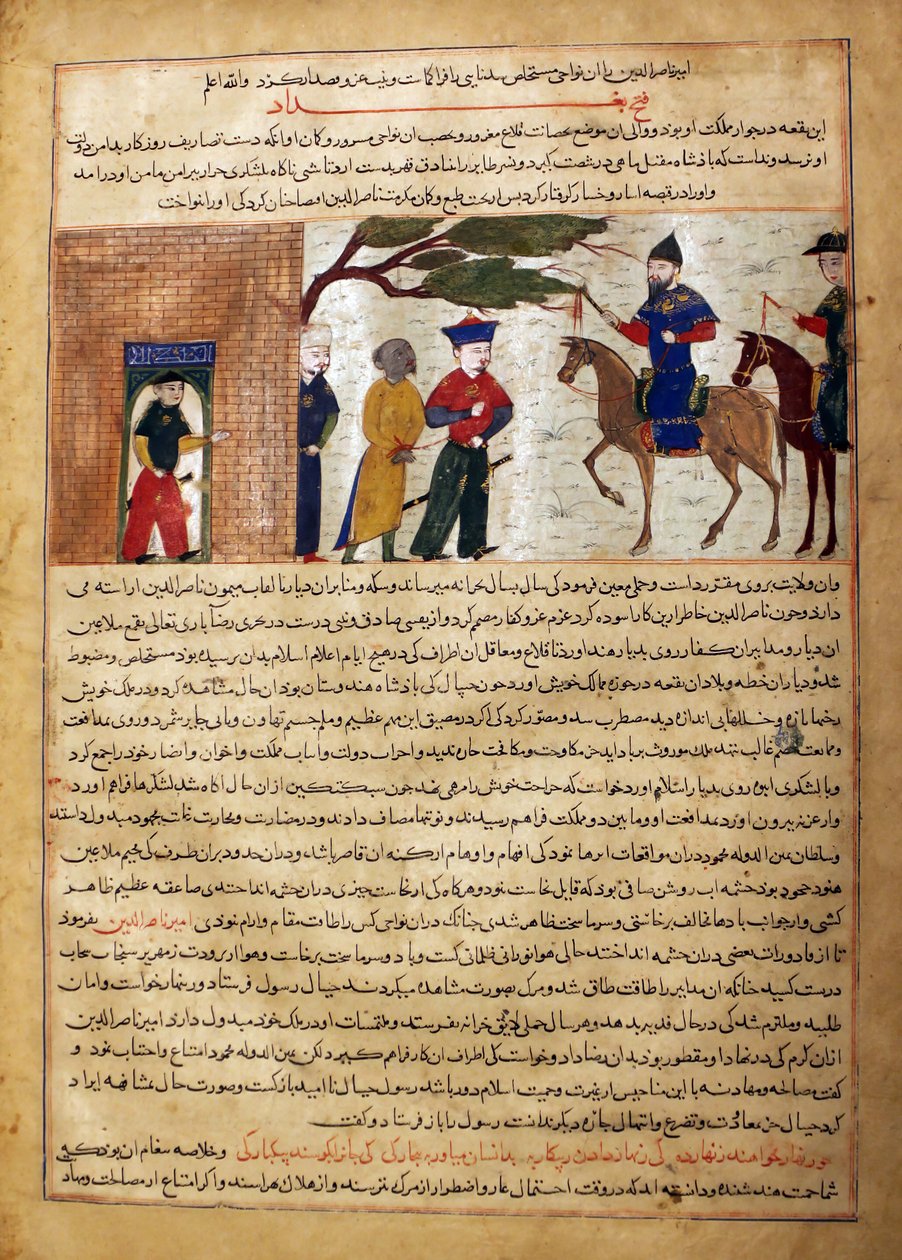 امیر ناصرالدین را ان نواحی مستخلص شد نیابتی را فرا کماشت و نیت غزو قصدار کرد والله اعلم
فتح بغداد
این بقعه در جوار مملکت او بود و والی ان موضع بحصانت قلاع مغرور و بخصب ان نواحی مسرور و کمان او انکه دست تصاریف روزکار بدامن دولت
او نرسد و ندانست که باذشاه مقتل ماهی در شست کیرد و نسر طایر را بنادق قهر بدست ارد تا شبی ناکاه بلشکری جرار پیرامن مامن او در امد
و او را در قبضه اسار و خسار کرفتار کرد پس اریحیت طبع و کمان مکرمت ناصرالدین او ضمان کرد کی او را بنواخت
وان ولایت بروی مقرر داشت و حملی معین فرمود کی سال بسال بخزانه میرساند و سکه و منابر ان دیار بالقاب میمون ناصرالدین اراسته می
دارد و چون ناصرالدین خاطر ازین کار اسوده کرد عزم غزو کفار مصمم کرد و از یقینی صادق و نیتی درست در تحری رضاء باری تعالی بقمع ملاعین
ان دیار و مدابیر ان کفار روی بدیار هند اورد تا قلاع و معاقل ان اطراف کی در هیچ ایام اعلام اسلام بدان نرسیده بود مستخلص و مضبوط
شد و دیار ان خطه و بلاد ان بقعه در حوزه ممالک خویش اورد چون جیپال کی باذشاه هندوستان بود ان حال مشاهده کرد و در ملک خویش
رخنها تازه و خللهای بی اندازه دید مضطرب شد و مصور کرد کی اکر در مضیق این مهم عظیم و ملم جسیم تهاون و توانی جایز شمرد و روی بمدافعت
و ممانعت خصم غالب ننهد ملک موروث بر باد اید جز مکاوحت و مکافحت چاره ندید و احزاب دولت و اسباب مملکت و اخوان و انصار خود را جمع کرد
و با لشکری انبوه روی بدیار اسلام اورد خواست که جراحت خویش را مرهمی نهد چون سبکتکین از ان حال اکاه شد لشکرها فراهم اورد
و از غزنه بیرون اورد بمدافعت او و ما بین دو مملکت فراهم رسیدند و نوبتها مصاف دادند و در مضاربت و محاربت غایت مجهود مبذول داشتند
و سلطان یمین الدوله محمود در ان مواقعات اثرها نمود کی افهام و اوهام از کنه ان قاصر باشد و در ان حدود بر ان طرف کی مخیم ملاعین
هنود جحود بود چشمه اب روشن صافی بود که قابل نجاست نبود و هرکاه کی از نجاست چیزی در ان چشمه انداختندی صاعقه عظیم ظاهر
کشتی و از جوانب بادها مخالف برخاستی و سرما سخت ظاهر شدی چنانک در ان نواحی کس را طاقت مقام و ارام نبودی امیر ناصرالدین بفرمود
تا از قاذورات بعضی در ان چشمه انداختند حالی هوا نورانی ظلمانی کشت و باد و سرما سخت برخاست و هوا از برودت زمهریر سنجاب سحاب
در پشت کشید چنانکه ان مدابیر را طاقت طاق شد و مرک بصورت مشاهده میکردند جیپال رسول فرستاد و زینهار خواست و امان
طلبید و ملتزم شد کی در حال فدیه بدهد و هر سال حملی لایق خزانه بفرستد و ملتمسات او در ملک خود مبذول دارد امیر ناصرالدین
از ان کرم کی در نهاد او مفطور بود بدان رضا داد و خواست کی اطراف ان کار فراهم کیرد لکن یمین الدوله محمود امتناع و اجتناب نمود و
کفت مصالحه و مهادنه با این مناحیس از غیرت و حمیت اسلام دور باشد رسول جیپال ناامید بازکشت و صورت حال بمشافهه ایراد
کرد جیپال جز معاودت و تضرع و ابتهال چاره دیکر ندانست رسول را باز فرستاد و کفت
چو زنهار خواهند زنهار ده کی زنهار دادن ز پیکار به
و خلاصه پیغام ان بود که
شما حمیت هند شنیده و دانسته اید که در وقت احتمال عار و اضطرار از مرک نترسند و از هلاک نهراسند و اکر امتناع از مصالحت و مهاد